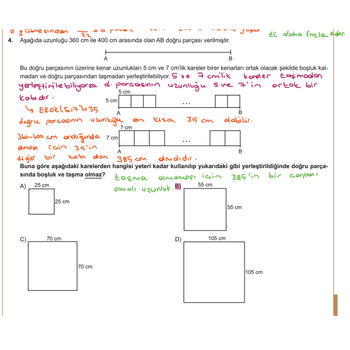 4. Aşağıda uzunluğu 360 cm ile 400 cm arasında olan AB doğru parçası verilmiştir.
A B
Bu doğru parçasının üzerine kenar uzunlukları 5 cm ve 7 cm'lik kareler birer kenarları ortak olacak şekilde boşluk kal-
madan ve doğru parçasından taşmadan yerleştirilebiliyor. 5 ve 7 cm'lik kareler taşmadan
yerleştirilebiliyorsa d. parçasının uzunluğu 5 ve 7'in ortak bir
katıdır.
5 cm
5 cm
...
A B
↳ EKOK(5,7)=35
doğru parçasının uzunluğu en kısa 35 cm olabilir.
7 cm
7 cm
...
A B
360-400 cm aralığında
olması için 35'in
diğer bir katı olan 385 cm olmalıdır.
Buna göre aşağıdaki karelerden hangisi yeteri kadar kullanılıp yukarıdaki gibi yerleştirildiğinde doğru parça-
sında boşluk ve taşma olmaz? taşma olmaması için 385'in bir çarpanı
olmalı uzunluk.
A) 25 cm
25 cm
B) 55 cm
55 cm
C) 70 cm
70 cm
D) 105 cm
105 cm